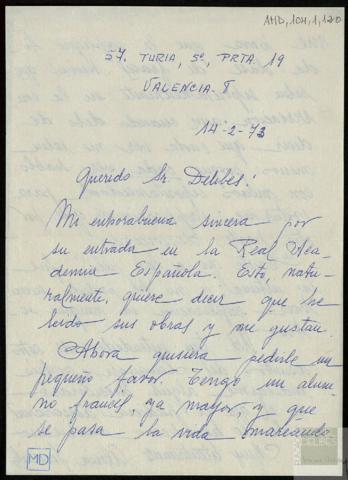 AMD, 104, 1, 120
57. TURIA, 5º, PRTA. 19
VALENCIA. 8
14-2-73
Querido Sr. Delibes:
Mi enhorabuena sincera por
su entrada en la Real Aca-
demia Española. Esto, natu-
ralmente, quiere decir que he
leído sus obras y me gustan.
Ahora quisiera pedirle un
pequeño favor. Tengo un alum-
no francés, ya mayor, y que
se pasa la vida mareando
MD